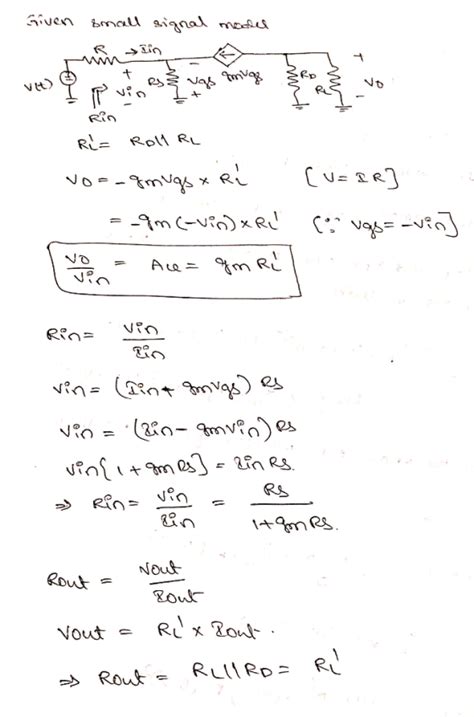 Given small signal model
R → Iin
V(t) + Vin - Rs - Vgs + gmVgs RD RL + V0
Rin
RL' = RD || RL
V0 = -gmVgs × RL' [V = IR]
= -gm(-Vin) × RL' (∵ Vgs = -Vin]
V0/Vin = Ave = gm RL'
Rin = Vin/Iin
Vin = (Iin + gmVgs) Rs
Vin = (Iin - gmVin) Rs
Vin[1 + gm Rs] = Iin Rs.
⇒ Rin = Vin/Iin = Rs/1+gm Rs.
Rout = Vout/Iout
Vout = RL' × Iout.
⇒ Rout = RL || RD = RL'